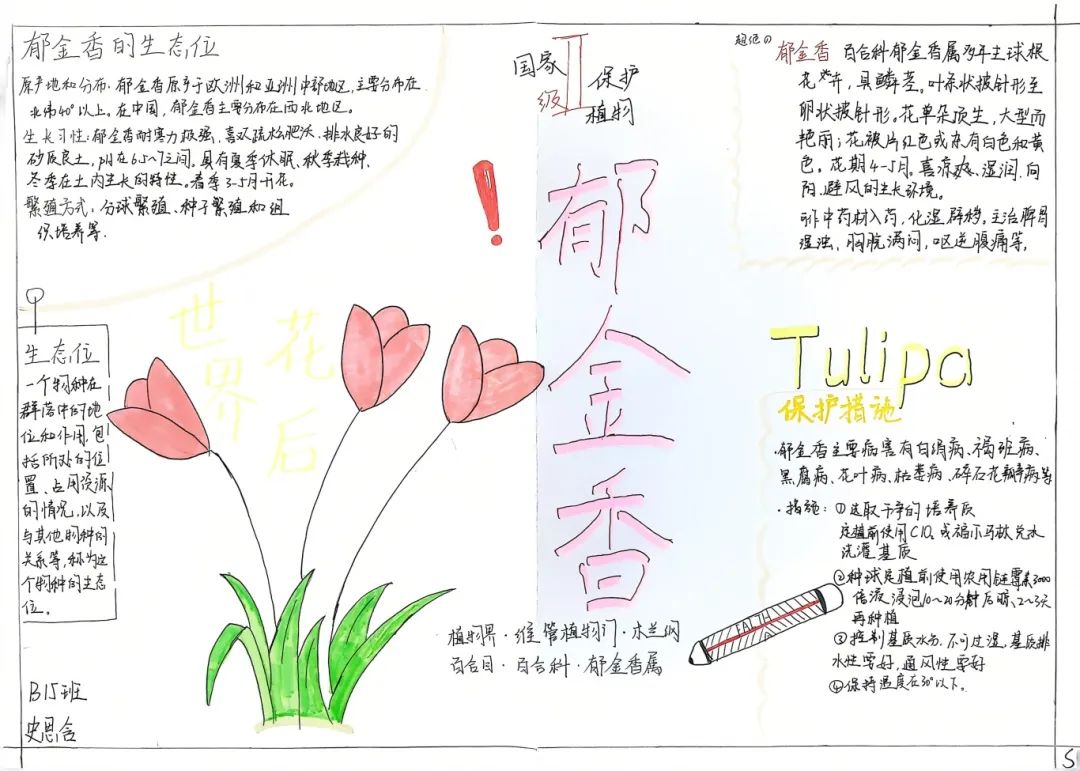 郁金香的生态位
原产地和分布:郁金香原产于欧洲和亚洲中部地区,主要分布在
北纬40°以上。在中国,郁金香主要分布在西北地区。
生长习性:郁金香耐寒力极强,喜欢疏松肥沃、排水良好的
砂质良土,pH在6.5~7之间。具有夏季休眠、秋季栽种、
冬季在土内生长的特性。春季3-5月开花。
繁殖方式:分球繁殖、种子繁殖和组
织培养等.
生态位
一个物种在
群落中的地
位和作用,包
括所处的位
置、占用资源
的情况,以及
与其他物种的
关系等,称为这
个物种的生态
位。
B15班
世界
花后
国家
II
级
保护
植物
郁金香
植物界·维管植物门·木兰纲
百合目·百合科·郁金香属
郁金香 百合科郁金香属多年生球根
花卉,具鳞茎。叶条状披针形至
卵状披针形。花单朵顶生,大型而
艳丽;花被片红色或杂有白色和黄
色。花期4-5月。喜凉爽、湿润、向
阳、避风的生长环境。
可作中药材入药,化湿辟秽。主治脾胃
湿浊,胸脘满闷,呕逆腹痛等,
Tulipa
保护措施
·郁金香主要病害有白绢病、褐斑病、
黑腐病、花叶病、枯萎病、碎石花瓣病等
·措施:①选取干净的培养质
定植前使用ClO₂或福尔马林兑水
浇灌基质
②种球定植前使用农用链霉素3000
倍液浸泡10~20分钟后晾、2~3天
再种植
③控制基质水分,不可过湿,基质排
水性要好,通风性要好
④保持温度在30°以下。
5